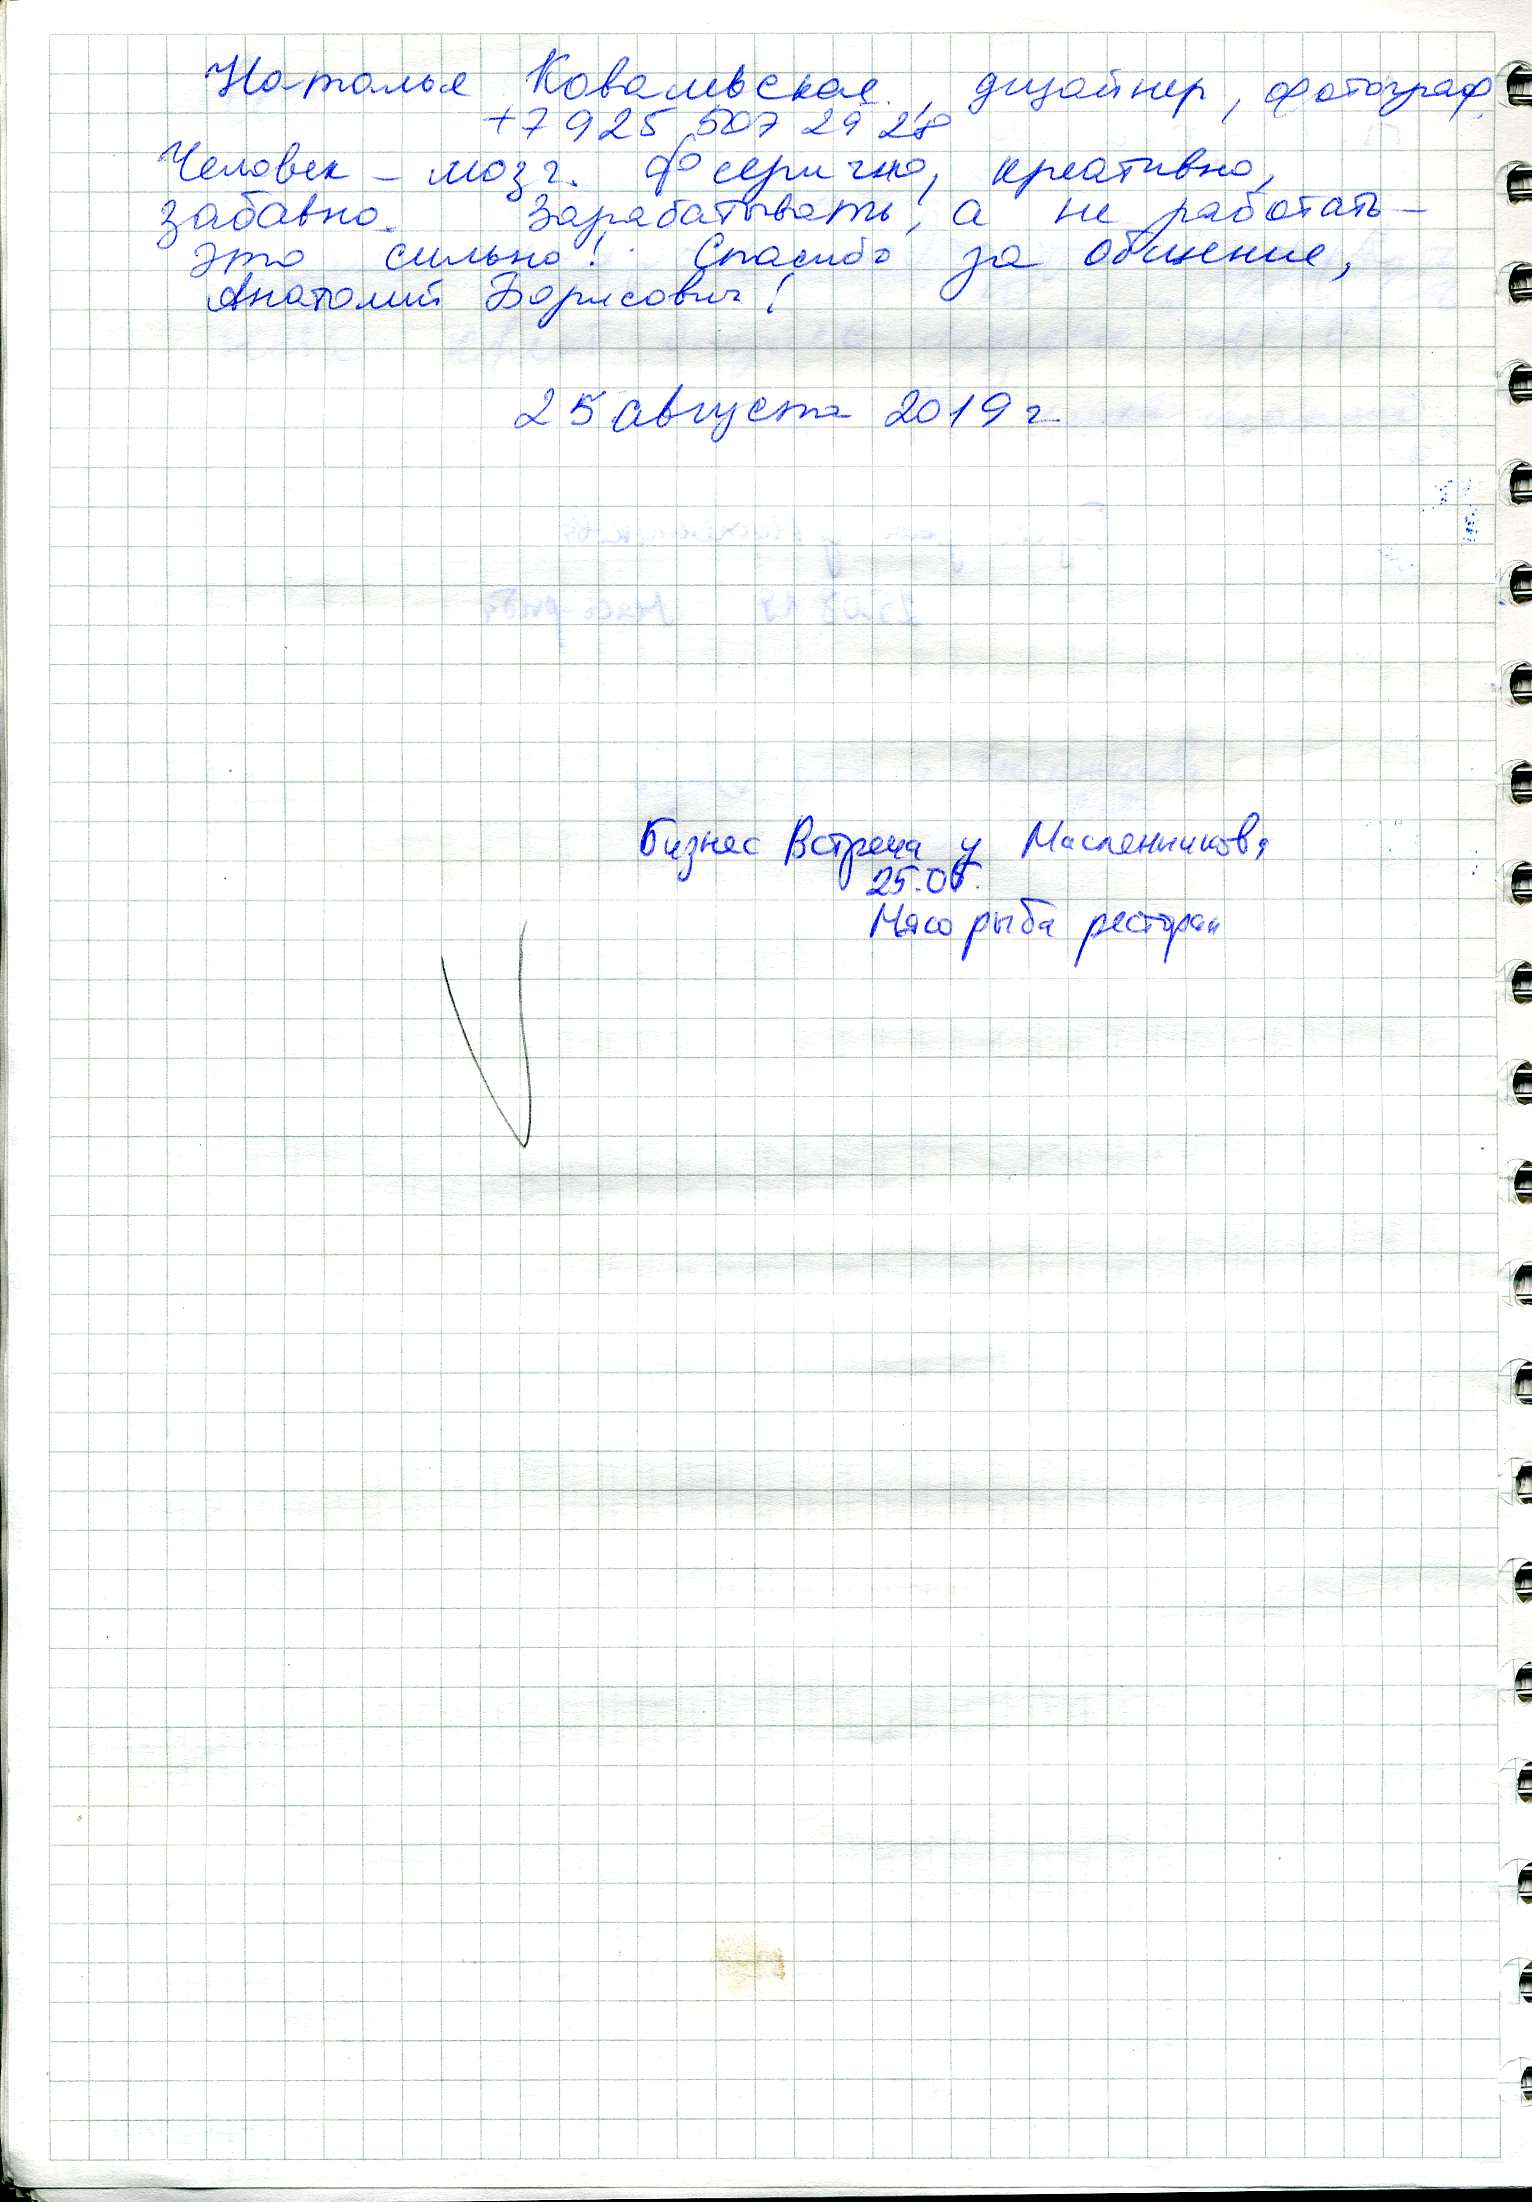 Наталья Ковалевская, дизайнер, фотограф
+7 925 507 29 28
Человек – мозг. Феерично, креативно,
забавно. Зарабатывать, а не работать –
это сильно! Спасибо за общение,
Анатолий Борисович!
25 августа 2019 г
Бизнес Встреча у Масленникова
25.08.
Мясо рыба ресторан